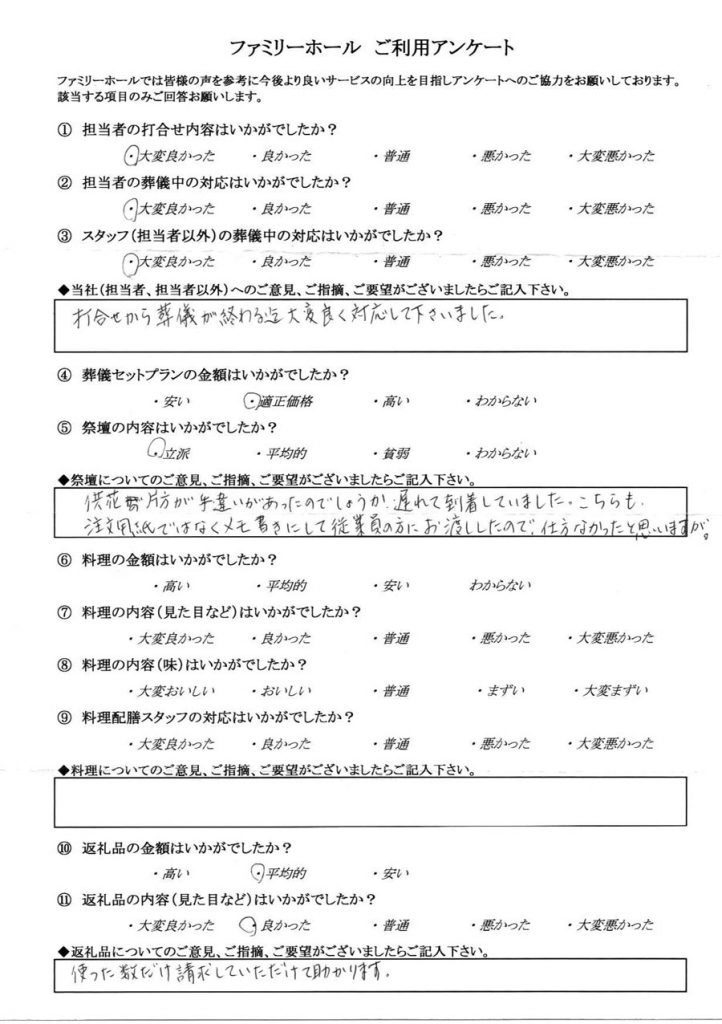 ファミリーホール　ご利用アンケート
ファミリーホールでは皆様の声を参考に今後より良いサービスの向上を目指しアンケートへのご協力をお願いしております。
該当する項目のみご回答お願いします。
① 担当者の打合せ内容はいかがでしたか？
・大変良かった ・良かった ・普通 ・悪かった ・大変悪かった
② 担当者の葬儀中の対応はいかがでしたか？
・大変良かった ・良かった ・普通 ・悪かった ・大変悪かった
③ スタッフ（担当者以外）の葬儀中の対応はいかがでしたか？
・大変良かった ・良かった ・普通 ・悪かった ・大変悪かった
◆当社（担当者、担当者以外）へのご意見、ご指摘、ご要望がございましたらご記入下さい。
打合せから葬儀が終わる迄大変良く対応して下さいました。
④ 葬儀セットプランの金額はいかがでしたか？
・安い ・適正価格 ・高い ・わからない
⑤ 祭壇の内容はいかがでしたか？
・立派 ・平均的 ・貧弱 ・わからない
◆祭壇についてのご意見、ご指摘、ご要望がございましたらご記入下さい。
供花片方が手違いがあったのでしょうか、遅れて到着していました。こちらも、
注文用紙ではなくメモ書きにして従業員の方にお渡ししたので、仕方なかったと思いますが。
⑥ 料理の金額はいかがでしたか？
・高い ・平均的 ・安い わからない
⑦ 料理の内容（見た目など）はいかがでしたか？
・大変良かった ・良かった ・普通 ・悪かった ・大変悪かった
⑧ 料理の内容（味）はいかがでしたか？
・大変おいしい ・おいしい ・普通 ・まずい ・大変まずい
⑨ 料理配膳スタッフの対応はいかがでしたか？
・大変良かった ・良かった ・普通 ・悪かった ・大変悪かった
◆料理についてのご意見、ご指摘、ご要望がございましたらご記入下さい。
⑩ 返礼品の金額はいかがでしたか？
・高い ・平均的 ・安い
⑪ 返礼品の内容（見た目など）はいかがでしたか？
・大変良かった ・良かった ・普通 ・悪かった ・大変悪かった
◆返礼品についてのご意見、ご指摘、ご要望がございましたらご記入下さい。
使った数だけ請求していただけて助かります。